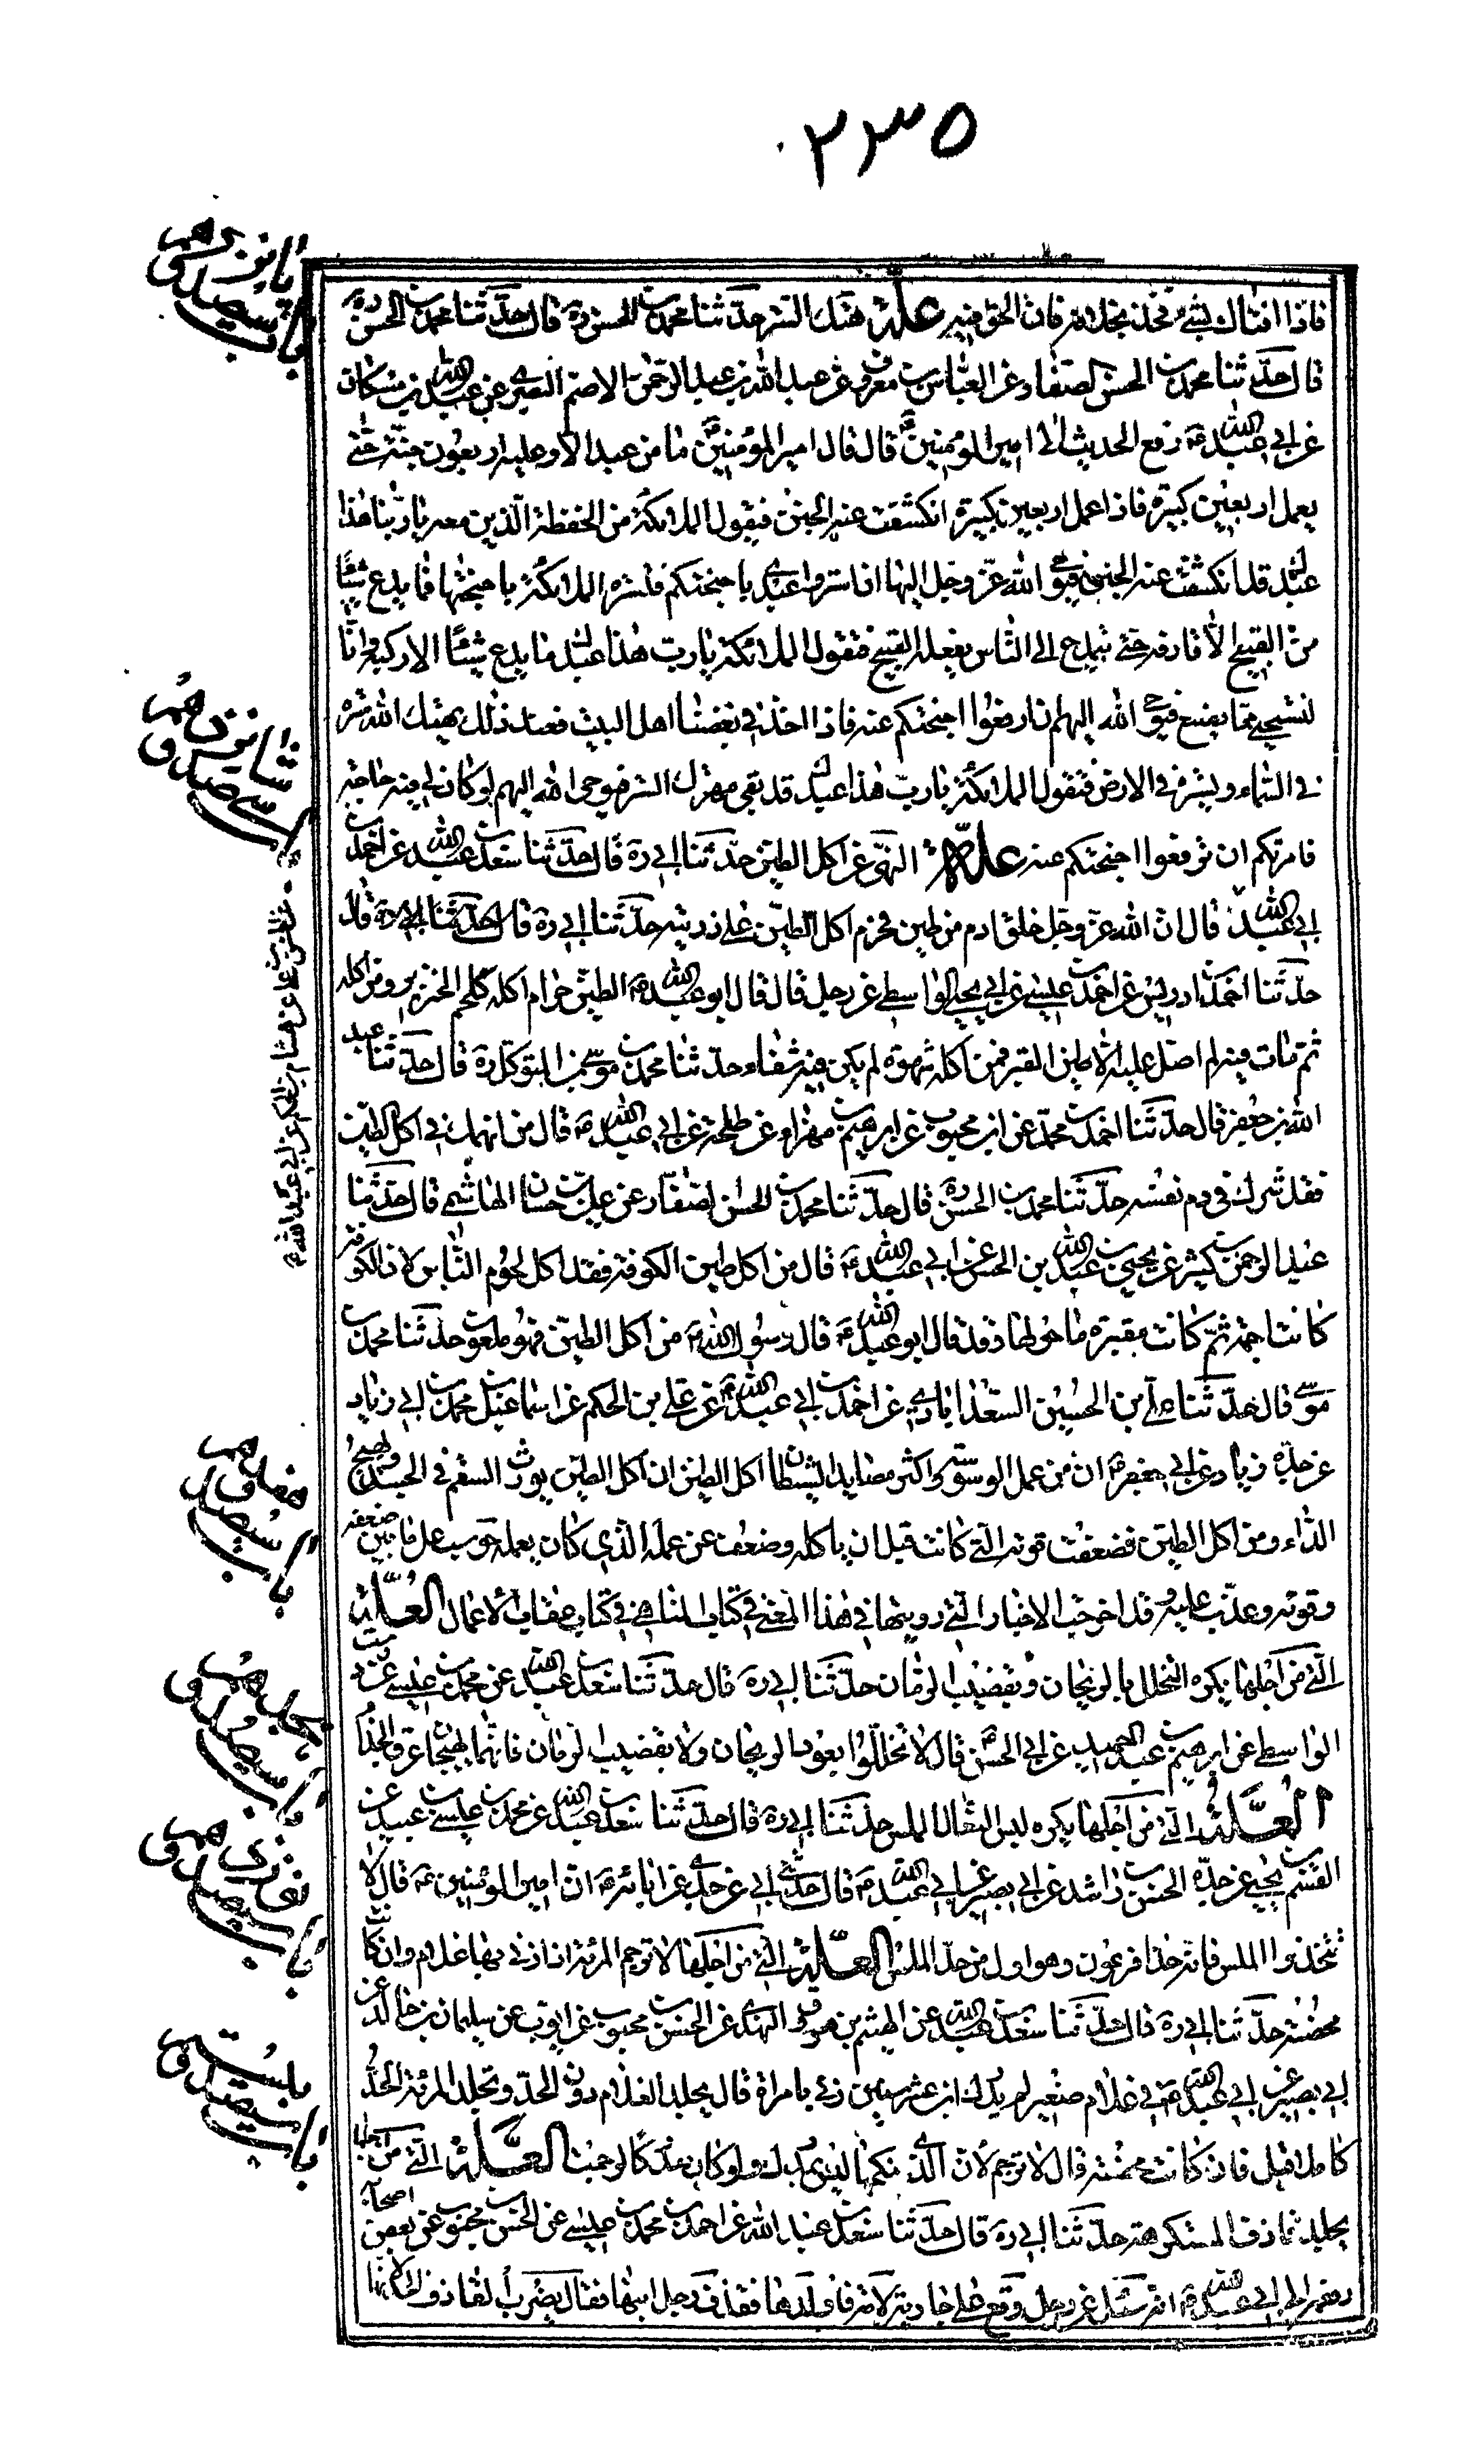 ٢٣٥
فاذا افتاك بشئ فخذ بخلافه فان الحق فيه علة هتك الستر حدثنا محمد بن الحسن ره قال حدثنا محمد بن الحسن ره
قال حدثنا محمد بن الحسن الصفار عن العباس بن معروف عن عبد الله بن عبد الرحمن الاصم البصري عن عبد الله بن مسكان
عن ابي عبد الله ع رفع الحديث الى امير المؤمنين ع قال قال امير المؤمنين ع ما من عبد الا وعليه اربعون جنة حتى
يعمل اربعين كبيرة فاذا عمل اربعين كبيرة انكشفت عنه الجنن فيقول الملائكة من الحفظة الذين معه يا ربنا هذا
عبدك قد انكشفت عنه الجنن فيوحي الله عز وجل اليها ان استروا عبدي باجنحتكم فتستره الملائكة باجنحتها فما يدع شيئا
من القبيح الا قارفه حتى يتمدح الى الناس بفعله القبيح فتقول الملائكة يا رب هذا عبدك ما يدع شيئا الا ركبه وانا
لنستحيي مما يصنع فيوحي الله اليهم ان ارفعوا اجنحتكم عنه فاذا اخذ في بغضنا اهل البيت فعند ذلك يهتك الله ستره
في السماء ويستره في الارض فتقول الملائكة يا رب هذا عبدك قد بقي مهتوك الستر فيوحي الله اليهم لو كان لي فيه حاجة
ما مرتكم ان ترفعوا اجنحتكم عنه علة النهي عن اكل الطين حدثنا ابي ره قال حدثنا سعد بن عبد الله عن احمد بن
ابي عبد الله قال ان الله عز وجل خلق ادم من طين فحرم اكل الطين على ذريته حدثنا ابي ره قال حدثنا ابي ره قال
حدثنا احمد بن ادريس عن احمد بن عيسى عن ابي يحيى الواسطي عن رجل قال قال ابو عبد الله ع الطين حرام اكله كلحم الخنزير ومن اكله
ثم مات فيه لم اصل عليه الا طين القبر فمن اكله شهوة لم يكن فيه شفاء حدثنا محمد بن موسى بن المتوكل ره قال حدثنا عبد
الله بن جعفر قال حدثنا احمد بن محمد عن ابن محبوب عن ابرهيم بن مهزم عن طلحة عن ابي عبد الله ع قال من انهمك في اكل الطين
فقد شرك في دم نفسه حدثنا محمد بن الحسن ره قال حدثنا محمد بن الحسن الصفار عن علي بن حسان الهاشمي قال حدثنا
عبد الرحمن بن كثير عن يحيى بن عبد الله بن الحسن عن ابي عبد الله ع قال من اكل طين الكوفة فقد اكل لحوم الناس لان الكوفة
كانت اجمة ثم كانت مقبرة ما حولها وقد قال ابو عبد الله ع قال رسول الله ص من اكل الطين فهو ملعون حدثنا محمد بن
موسى قال حدثنا علي بن الحسين السعدابادي عن احمد بن ابي عبد الله عن علي بن الحكم عن اسماعيل بن محمد بن ابي زياد
عن جده زياد عن ابي جعفر ع ان من عمل الوسوسة واكثر مصايد الشيطان اكل الطين ان اكل الطين يورث السقم في الجسد ويهيج
الداء ومن اكل الطين فضعفت قوته التي كانت قبل ان ياكله وضعف عن عمله الذي كان يعمله حوسب على ما بين ضعفه
وقوته وعذب عليه وقد اخرجت الاخبار التي رويتها في هذا المعنى في كتاب المناهي في كتاب عقاب الاعمال العلة
التي من اجلها يكره التخلل بالريحان وبقضيب الرمان حدثنا ابي ره قال حدثنا سعد بن عبد الله عن محمد بن عيسى عن درست
الواسطي عن ابرهيم بن عبد الحميد عن ابي الحسن ع قال لا تخللوا بعود الريحان ولا بقضيب الرمان فانهما يهيجان عرق الجذام
العلة التي من اجلها يكره لبس النعال الملس حدثنا ابي ره قال حدثنا سعد بن عبد الله عن محمد بن عيسى بن عبيد عن
القسم بن يحيى عن جده الحسن بن راشد عن ابي بصير عن ابي عبد الله ع قال حدثني ابي عن جدي عن ابائه ع ان امير المؤمنين ع قال لا
تتخذوا الملس فانه حذا فرعون وهو اول من حذا الملس العلة التي من اجلها لا ترجم المرئة اذا زنى بها غلام وان كانت
محصنة حدثنا ابي ره قال حدثنا سعد بن عبد الله عن الهيثم بن مسروق النهدي عن الحسن بن محبوب عن ابي ايوب عن سليمان بن خالد عن
ابي بصير عن ابي عبد الله ع في غلام صغير لم يدرك ابن عشر سنين زنى بامراة قال يجلد الغلام دون الحد وتجلد المرئة الحد
كاملا قيل فان كانت محصنة قال لا ترجم لان الذي نكحها ليس بمدرك ولو كان مدركا لرجمت العلة التي من اجلها
يجلد قاذف المستكرهة حدثنا ابي ره قال حدثنا سعد بن عبد الله عن احمد بن محمد بن عيسى عن الحسن بن محبوب عن بعض اصحابه
رفعه الى ابي عبد الله ع انه سئل عن رجل وقع على جارية لامه فاولدها فقذف رجل ابنها فقال يضرب القاذف الحد لانها
باب سيصد و
باب سيصد و
عن الحسن بن علي عن هشام بن الحكم عن ابي عبد الله ع
باب سيصد و
باب سيصد و
باب سيصد و
باب سيصد و